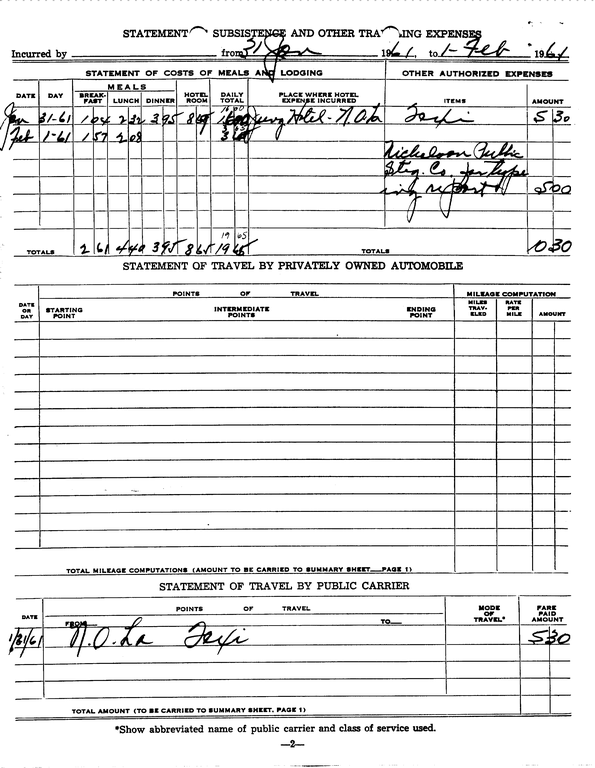 STATEMENT SUBSISTENCE AND OTHER TRA ING EXPENSES
Incurred by from 31 Jan 1961, to 1-Feb 1961
STATEMENT OF COSTS OF MEALS AND LODGING OTHER AUTHORIZED EXPENSES
DATE DAY MEALS HOTEL ROOM DAILY TOTAL PLACE WHERE HOTEL EXPENSE INCURRED ITEMS AMOUNT
BREAK-FAST LUNCH DINNER
Jan 31-61 104 232 395 16 00 Hotel - N.O. La Taxi 5 30
Feb 1-61 157 208 3 65
Nicholson Public
Steg. Co. for typ
ing report 500
19 65
TOTALS 2 61 440 395 865 1965 TOTALS 1030
STATEMENT OF TRAVEL BY PRIVATELY OWNED AUTOMOBILE
DATE OR DAY POINTS OF TRAVEL MILEAGE COMPUTATION
STARTING POINT INTERMEDIATE POINTS ENDING POINT MILES TRAV-ELED RATE PER MILE AMOUNT
TOTAL MILEAGE COMPUTATIONS (AMOUNT TO BE CARRIED TO SUMMARY SHEET—PAGE 1)
STATEMENT OF TRAVEL BY PUBLIC CARRIER
DATE POINTS OF TRAVEL MODE OF TRAVEL* FARE PAID AMOUNT
FROM TO
1/31/61 N.O. La Taxi 530
TOTAL AMOUNT (TO BE CARRIED TO SUMMARY SHEET, PAGE 1)
*Show abbreviated name of public carrier and class of service used.
—2—